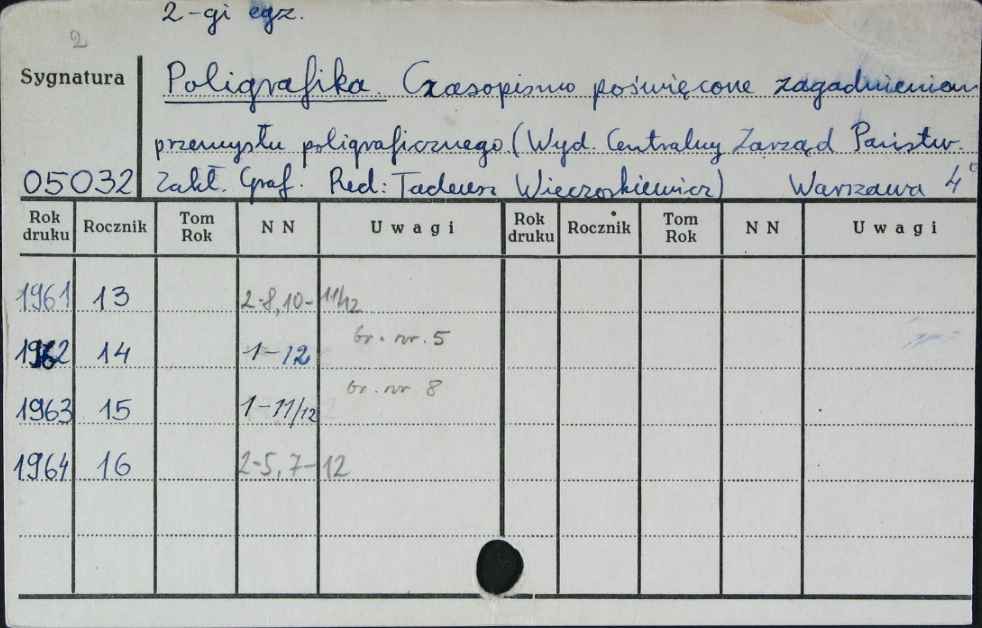 2-gi egz.
2
Sygnatura
Poligrafika. Czasopismo poświęcone zagadnieniom
przemysłu poligraficznego (Wyd. Centralny Zarząd Państw.
05032 Zakł. Graf. Red: Tadeusz Więczorkiewicz) Warszawa 4°
Rok druku Rocznik Tom Rok NN Uwagi Rok druku Rocznik Tom Rok NN Uwagi
1961 13 2-8, 10-11/12
1962 14 1-12 br. nr. 5
1963 15 1-11/12 br. nr 8
1964 16 2-5, 7-12